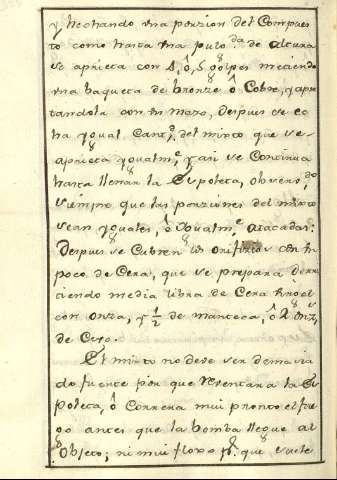 y hechando una porzion del Compues
to como hasta una pulg.da de altura
se aprieta con 4, ó, 5 golpes meciendo
una baqueta de bronze ó Cobre, y apre
tandola con un mazo, despues se ec
ha ygual Cant.d del mixto que se
aprieta ygualm.e y asi se Continua
hasta llenar la Espoleta, observ.do
siempre que las porziones del mixto
sean yguales, ó ygualm.e atacadas:
Despues se Cubren los orificios con un
poco de Cera, que se prepara derri
tiendo media libra de Cera
con onza, y 1/2 de manteca, ó 2 onz.s
de Cevo.
El mixto no deve ser demacia
do fuerte por que reventara la Es
poleta, ó Correra mui pronto el fue
go antes que la bomba llegue al
Objeto; ni mui floxo p.r que suele